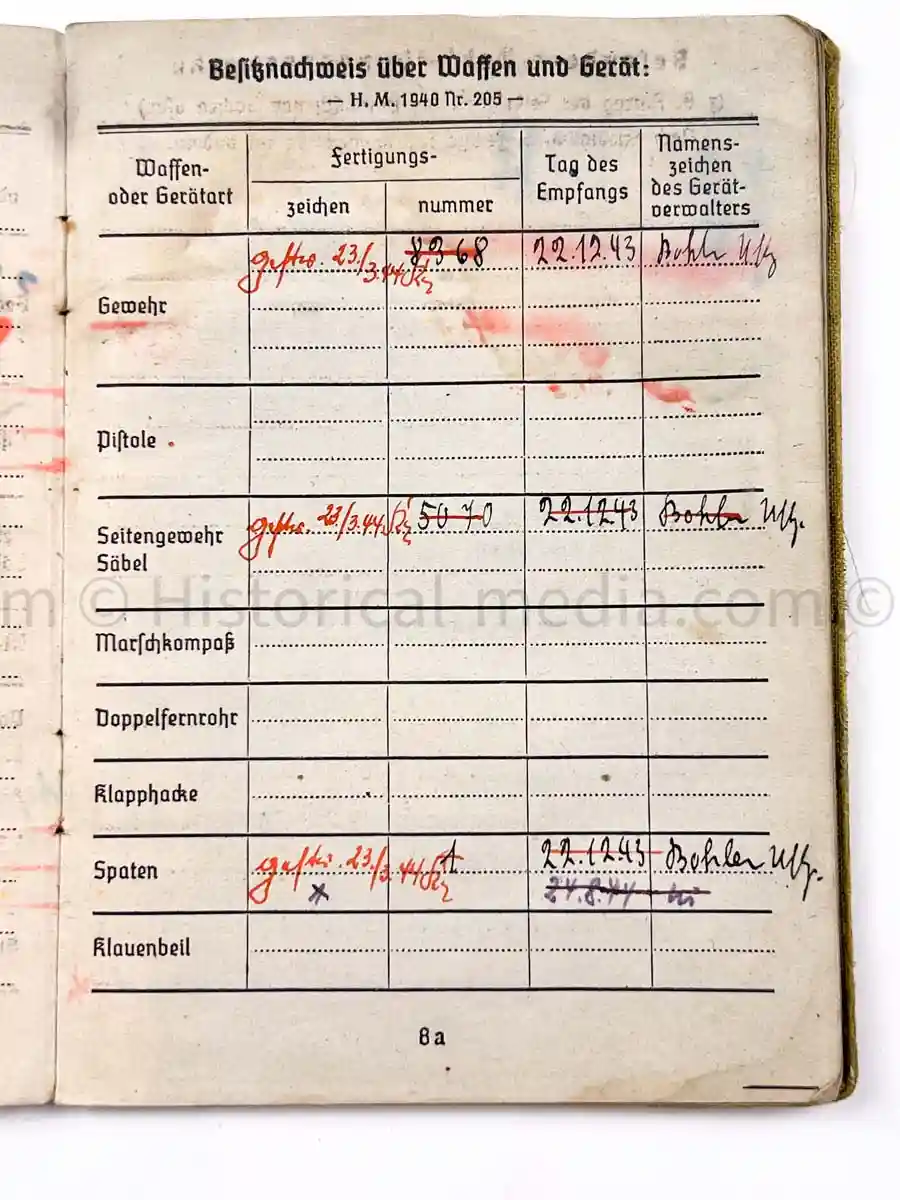 Besitznachweis über Waffen und Gerät:
— H. M. 1940 Nr. 205 —
Waffen-
oder Gerätart
Fertigungs-
zeichen
nummer
Tag des
Empfangs
Namens-
zeichen
des Gerät-
verwalters
Gewehr
gestr. 23./3.44 8368 22.12.43 Bohler Uffz
Pistole
Seitengewehr
Säbel
gestr. 23/3.44 5070 22.12.43 Bohler Uffz.
Marschkompaß
© Historical-media.com ©
Doppelfernrohr
Klapphacke
Spaten
gestr. 23/3.44 1 22.12.43 Bohler Uffz.
24.8.44
Klauenbeil
8a